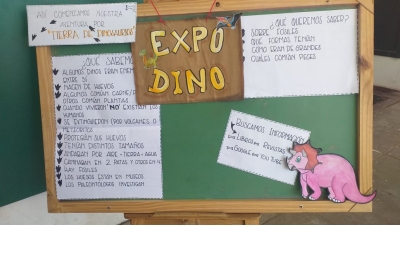 ASÍ COMENZAMOS NUESTRA
AVENTURA POR
"TIERRA DE DINOSAURIOS"
EXPO
DINO
¿QUÉ QUEREMOS SABER?
SOBRE FÓSILES
QUÉ FORMAS TENÍAN
COMO ERAN DE GRANDES
CUÁLES COMÍAN PECES
¿QUÉ SABEMOS
ALGUNOS DINOS ERAN ENEM
ENTRE SÍ
NACEN DE HUEVOS
ALGUNOS COMÍAN CARNE/
OTROS COMÍAN PLANTAS
CUANDO VIVIERON "NO" EXISTÍAN LOS
HUMANOS
SE EXTINGUIERON (POR VOLCANES O
METEORITO)
PROTEGÍAN SUS HUEVOS
TENÍAN DISTINTOS TAMAÑOS
ANDABAN POR AIRE - TIERRA - AGUA
CAMINABAN EN 2 PATAS Y OTROS EN 4
HAY FÓSILES
LOS HUESOS ESTÁN EN MUSEOS
LOS PALEONTÓLOGOS INVESTIGAN
BUSCAMOS INFORMACIÓN
LIBROS REVISTAS
GOOGLE YOU TUBE